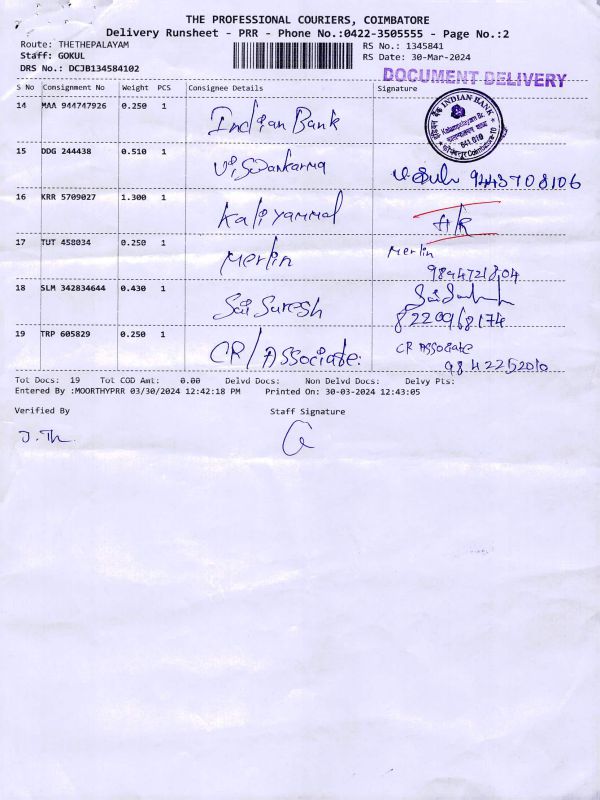 THE PROFESSIONAL COURIERS, COIMBATORE
Delivery Runsheet - PRR - Phone No.:0422-3505555 - Page No.:2
Route: THETHEPALAYAM
RS No.: 1345841
Staff: GOKUL
RS Date: 30-Mar-2024
DRS No.: DCJB134584102
DOCUMENT DELIVERY
S No Consignment No Weight PCS Consignee Details Signature
14 MAA 944747926 0.250 1 Indian Bank
INDIAN BANK
641 010
15 DDG 244438 0.510 1 Viswankarma
9443708106
16 KRR 5709027 1.300 1 Kaliyammal
17 TUT 458034 0.250 1 Merlin Merlin
989447218,04
18 SLM 342834644 0.430 1 Sai Suresh
8220968174
19 TRP 605829 0.250 1 CR/Associate. CR Associate
9842252010
Tot Docs: 19 Tot COD Amt: 0.00 Delvd Docs: Non Delvd Docs: Delvy Pts:
Entered By :MOORTHYPRR 03/30/2024 12:42:18 PM Printed On: 30-03-2024 12:43:05
Verified By Staff Signature